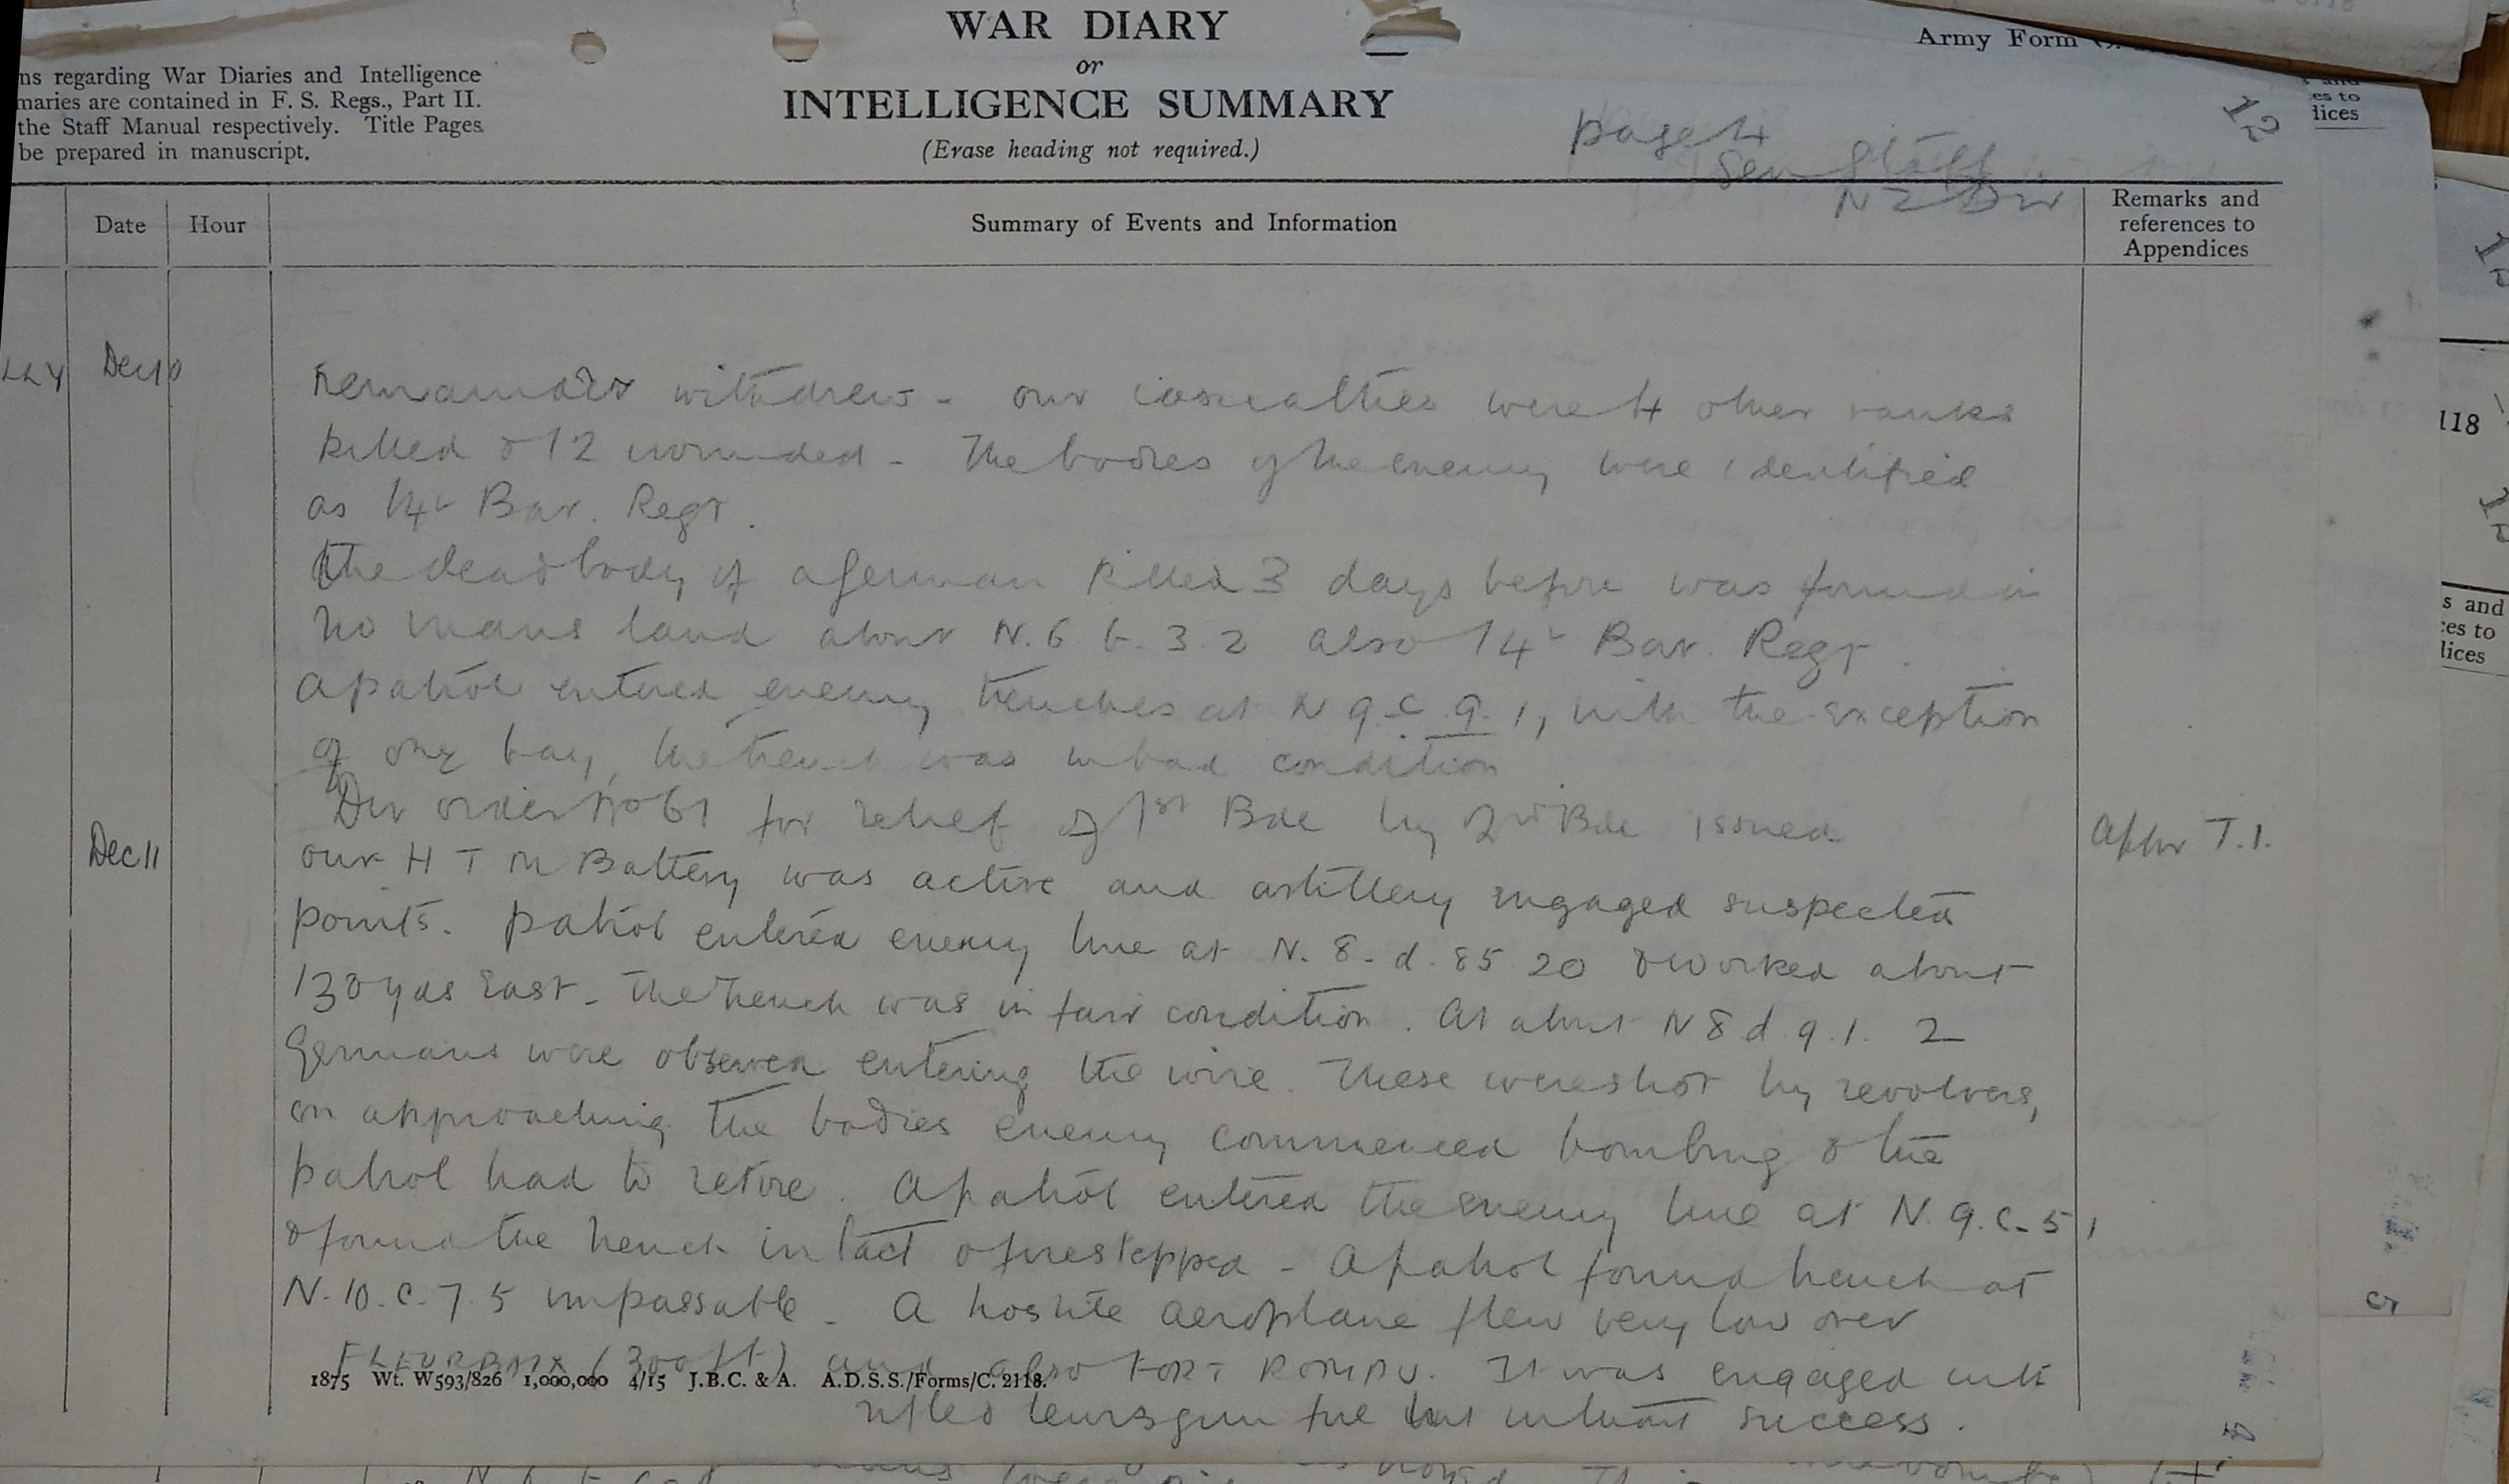 WAR DIARY
or
INTELLIGENCE SUMMARY
(Erase heading not required.)
Army Form
ns regarding War Diaries and Intelligence
maries are contained in F. S. Regs., Part II.
the Staff Manual respectively. Title Pages
be prepared in manuscript.
page 4
Gen Staff
N Z Div
12
Date
Hour
Summary of Events and Information
Remarks and
references to
Appendices
LLY Dec 10
Remainder withdrew - our casualties were 4 other ranks
killed & 12 wounded - The bodies of the enemy were identified
as 14th Bav. Regt.
The dead body of a German killed 3 days before was found in
No mans land about N. 6 b. 3. 2 also 14th Bav. Regt.
A patrol entered enemy trenches at N 9. c. 9. 1, with the exception
of one bay, the trench was in bad condition
Div order No 61 for relief of 1st Bde by 2nd Bde issued
Appx T.1.
Dec 11
our H T M Battery was active and artillery engaged suspected
points. Patrol entered enemy line at N. 8. d. 85 20 & worked about
130 yds East - The trench was in fair condition. At about N 8 d. 9. 1. 2
Germans were observed entering the wire. These were shot by revolvers,
on approaching the bodies enemy commenced bombing & the
patrol had to retire. A patrol entered the enemy line at N. 9. c. 5 1
& found the trench intact & firestepped - A patrol found trench at
N. 10. c. 7. 5 impassable - A hostile aeroplane flew very low over
FLEURBAIX (300 ft) and also FORT ROMPU. It was engaged with
rifle & Lewis gun fire but without success.
1875 Wt. W593/826 1,000,000 4/15 J.B.C. & A. A.D.S.S./Forms/C. 2118.
es to
dices
118
s and
ces to
dices
5
4